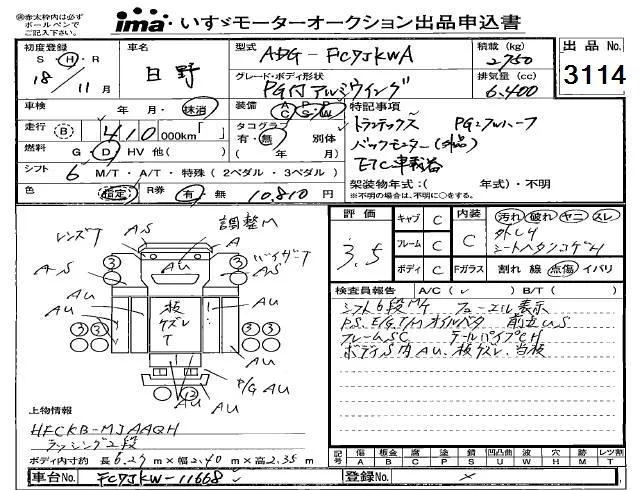 ㊟赤太枠内は必ず
ボールペンで
ご記入下さい。
ima いすゞモーターオークション出品申込書
初度登録
S・H・R
18年 11月
車名
日野
型式
ADG-FC7JKWA
積載 (kg)
2750
グレード・ボディ形状
PG付アルミウイング
排気量 (cc)
6,400
出品No.
3114
車検
年 月・抹消
装備
A C P S P W
特記事項
走行 (B) 410 000km
タコグラフ
有・無 別体
( 年 月)
トランテックス PGェフルハーフ
バックモニター(社外品)
ETC車載器
燃料 G・D HV 他( )
シフト 6 M/T・A/T・特殊 (2ペダル・3ペダル)
架装物年式:( 年式)・不明
※不明の場合は、不明に○をする。
色 指定 R券 有 無 10,810円
評価
3.5
キャブ C
フレーム C
ボディ C
内装 C
Fガラス
汚れ 破れ ヤニ スレ
シートヘタリコゲ
割れ 線 点傷 イパリ
検査員報告 A/C(レ) B/T( )
シフト6段M/T フューエル表示
P.S. E/G.T/M オイルベタ 前立US
フレームSC テールパイプCH
ボディS内AU、板ケズレ、当板
レンズT
調整M
バイザーT
AS
A
AU
板ケズレT
P/G AU
上物情報
HFCKB-MJAAQH
ラッシング2段
ボディ内寸約 長6.27m×幅2.40m×高2.35m
記号 傷A 板金B 腐C 塗P 錆S 凹凸曲U 波W 穴H 跡M レツ割T
車台No. FC7JKW-11668
登録No. ×